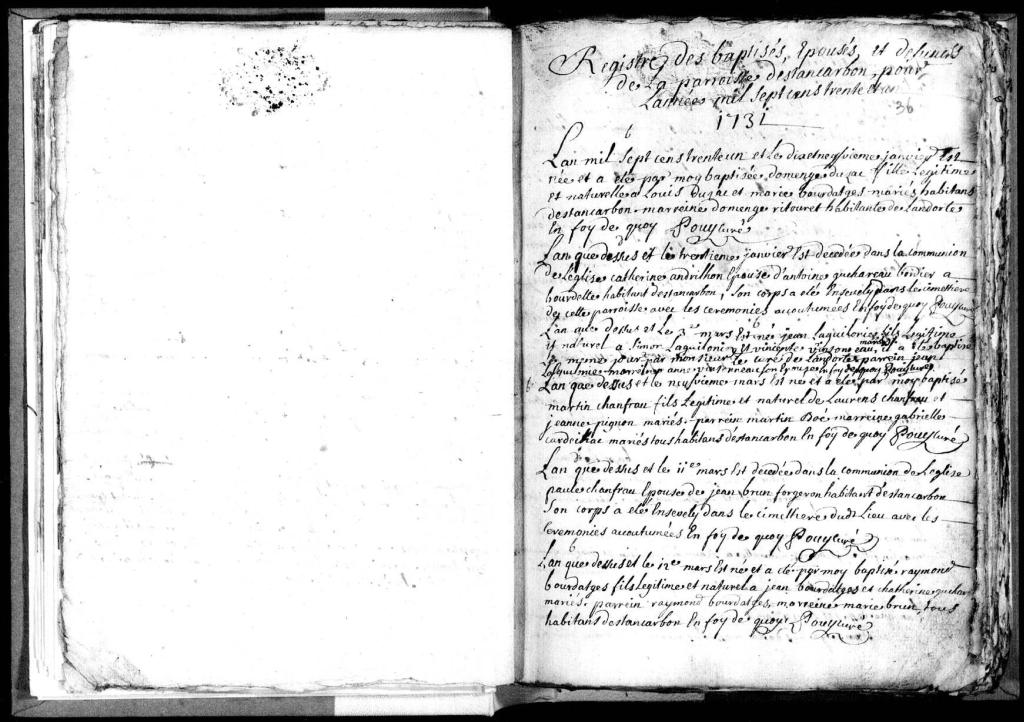 Registre des baptisés, Epousés, et defuncts
de La parroisse destancarbon, pour
Lannee mil Sept cens trente et un
36
1731
b
Lan mil Sept cens trente un et Le dixetneufvieme janvier Est
née et a eté par moy baptisée domenge dujac fille Legitime
et naturelle a Louis Dujac et marie bourdatges mariés habitans
destancarbon. marreine domenge ritouret habitante de Landorte
En foy de quoy Pouy curé
Lan que dessus et le trentieme janvier Est decedée dans la communion
de Leglise catherine andrilhon Epouse d'antoine guchareau bordier a
bourdelle habitant destancarbon, Son corps a eté Ensevely dans le cimettiere
de cette parroisse avec les ceremonies accoutumées En foy de quoy Pouy curé
b
Lan que dessus et Le 3e mars Est né jean Laguilonie fils Legitime
et naturel a Simon Laguilonie et vincente mariés, et a eté baptisé
Le meme jour par monsieur Le curé de Landorte parrein jean
marreine anne En foy de quoy Pouy curé
b
Lan que dessus et le neufvieme mars Est ne et a eté par moy baptisé
martin chanfrau fils Legitime et naturel de Laurens chanfrau et
jeanne pignon mariés. parrein martin Doé marreine gabrielle
cardeilhac mariés tous habitans destancarbon En foy de quoy Pouy curé
Lan que dessus et le 11e mars Est decedée dans la communion de Leglise
paule chanfrau Epouse de jean brun forgeron habitant destancarbon
Son corps a eté Ensevely dans le cimettiere dudt Lieu avec les
Ceremonies accoutumées En foy de quoy Pouy curé
b
Lan que dessus et le 12e mars Est ne et a eté par moy baptisé raymond
bourdatges fils legitime et naturel a jean bourdatges et chatherine
mariés. parrein raymond bourdatges, marreine marie brun, tous
habitans destancarbon En foy de quoy Pouy curé